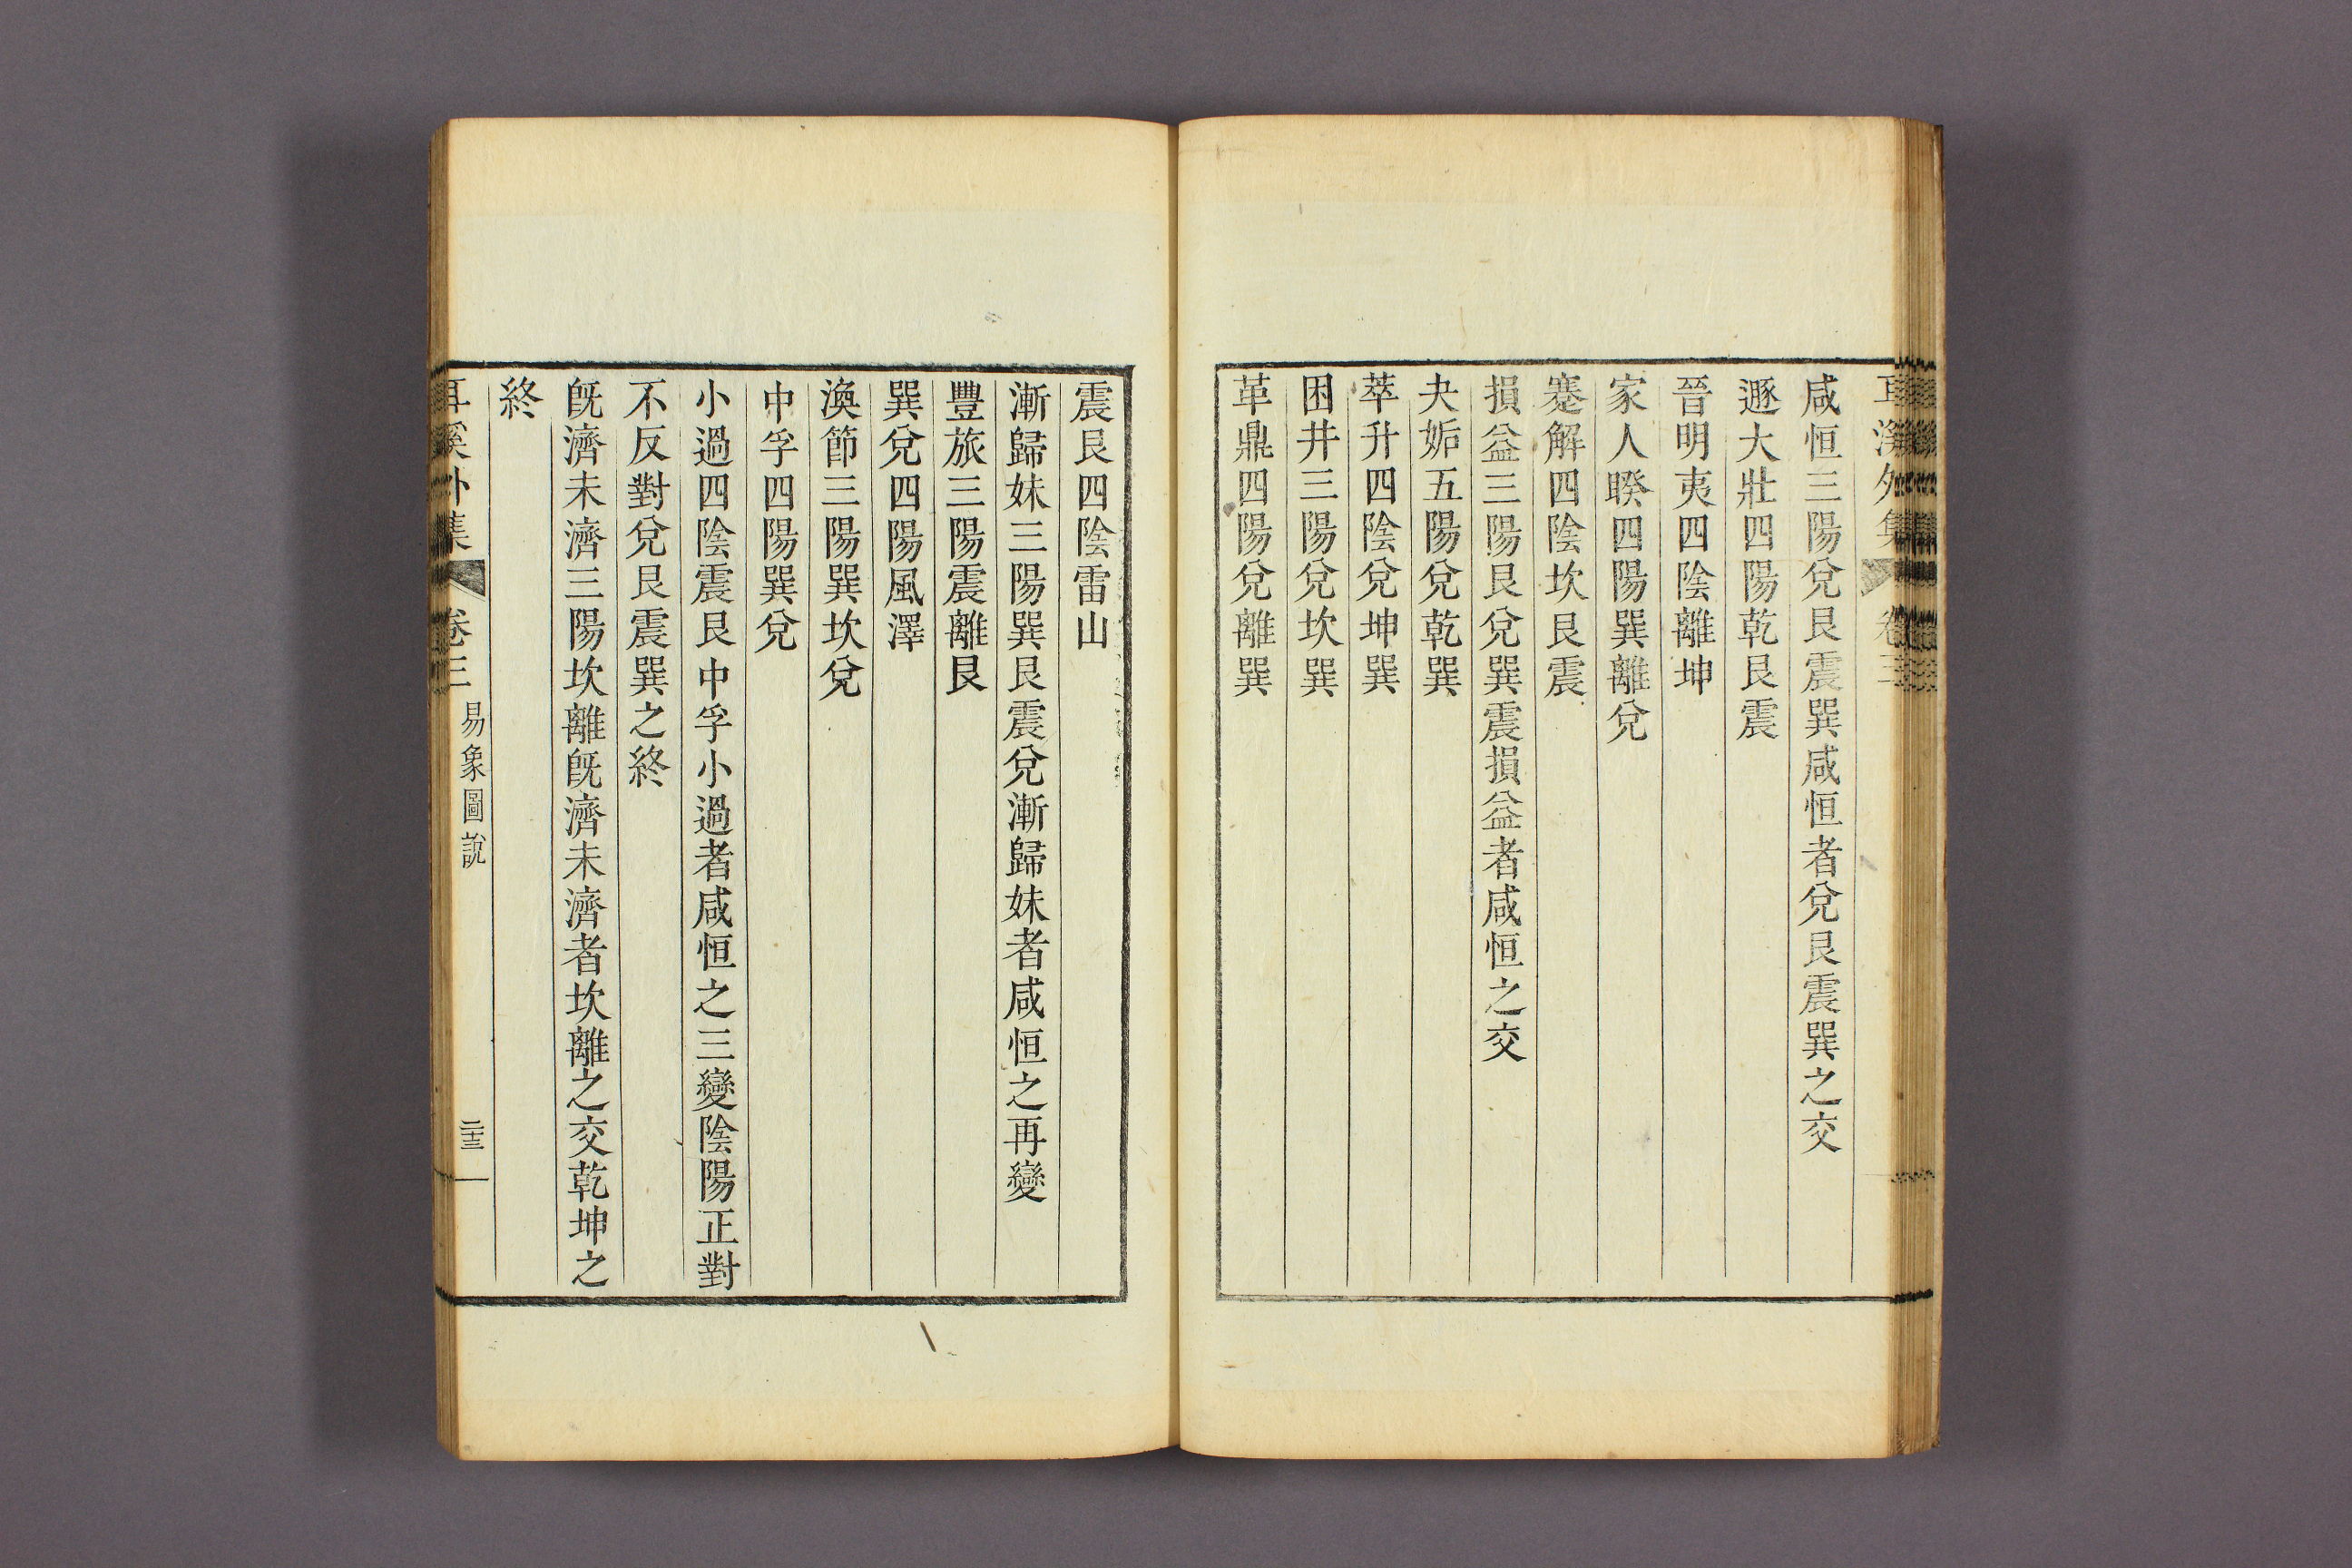 耳溪外集 卷三
咸恒三陽兌艮震巽咸恒者兌艮震巽之交
遯大壯四陽乾艮震
晉明夷四陰離坤
家人睽四陽巽離兌
蹇解四陰坎艮震
損益三陽艮兌巽震損益者咸恒之交
夬姤五陽兌乾巽
萃升四陰兌坤巽
困井三陽兌坎巽
革鼎四陽兌離巽
震艮四陰雷山
漸歸妹三陽巽艮震兌漸歸妹者咸恒之再變
豐旅三陽震離艮
巽兌四陽風澤
渙節三陽巽坎兌
中孚四陽巽兌
小過四陰震艮中孚小過者咸恒之三變陰陽正對
不反對兌艮震巽之終
旣濟未濟三陽坎離旣濟未濟者坎離之交乾坤之
終
耳溪外集 卷三 易象圖說 二十三